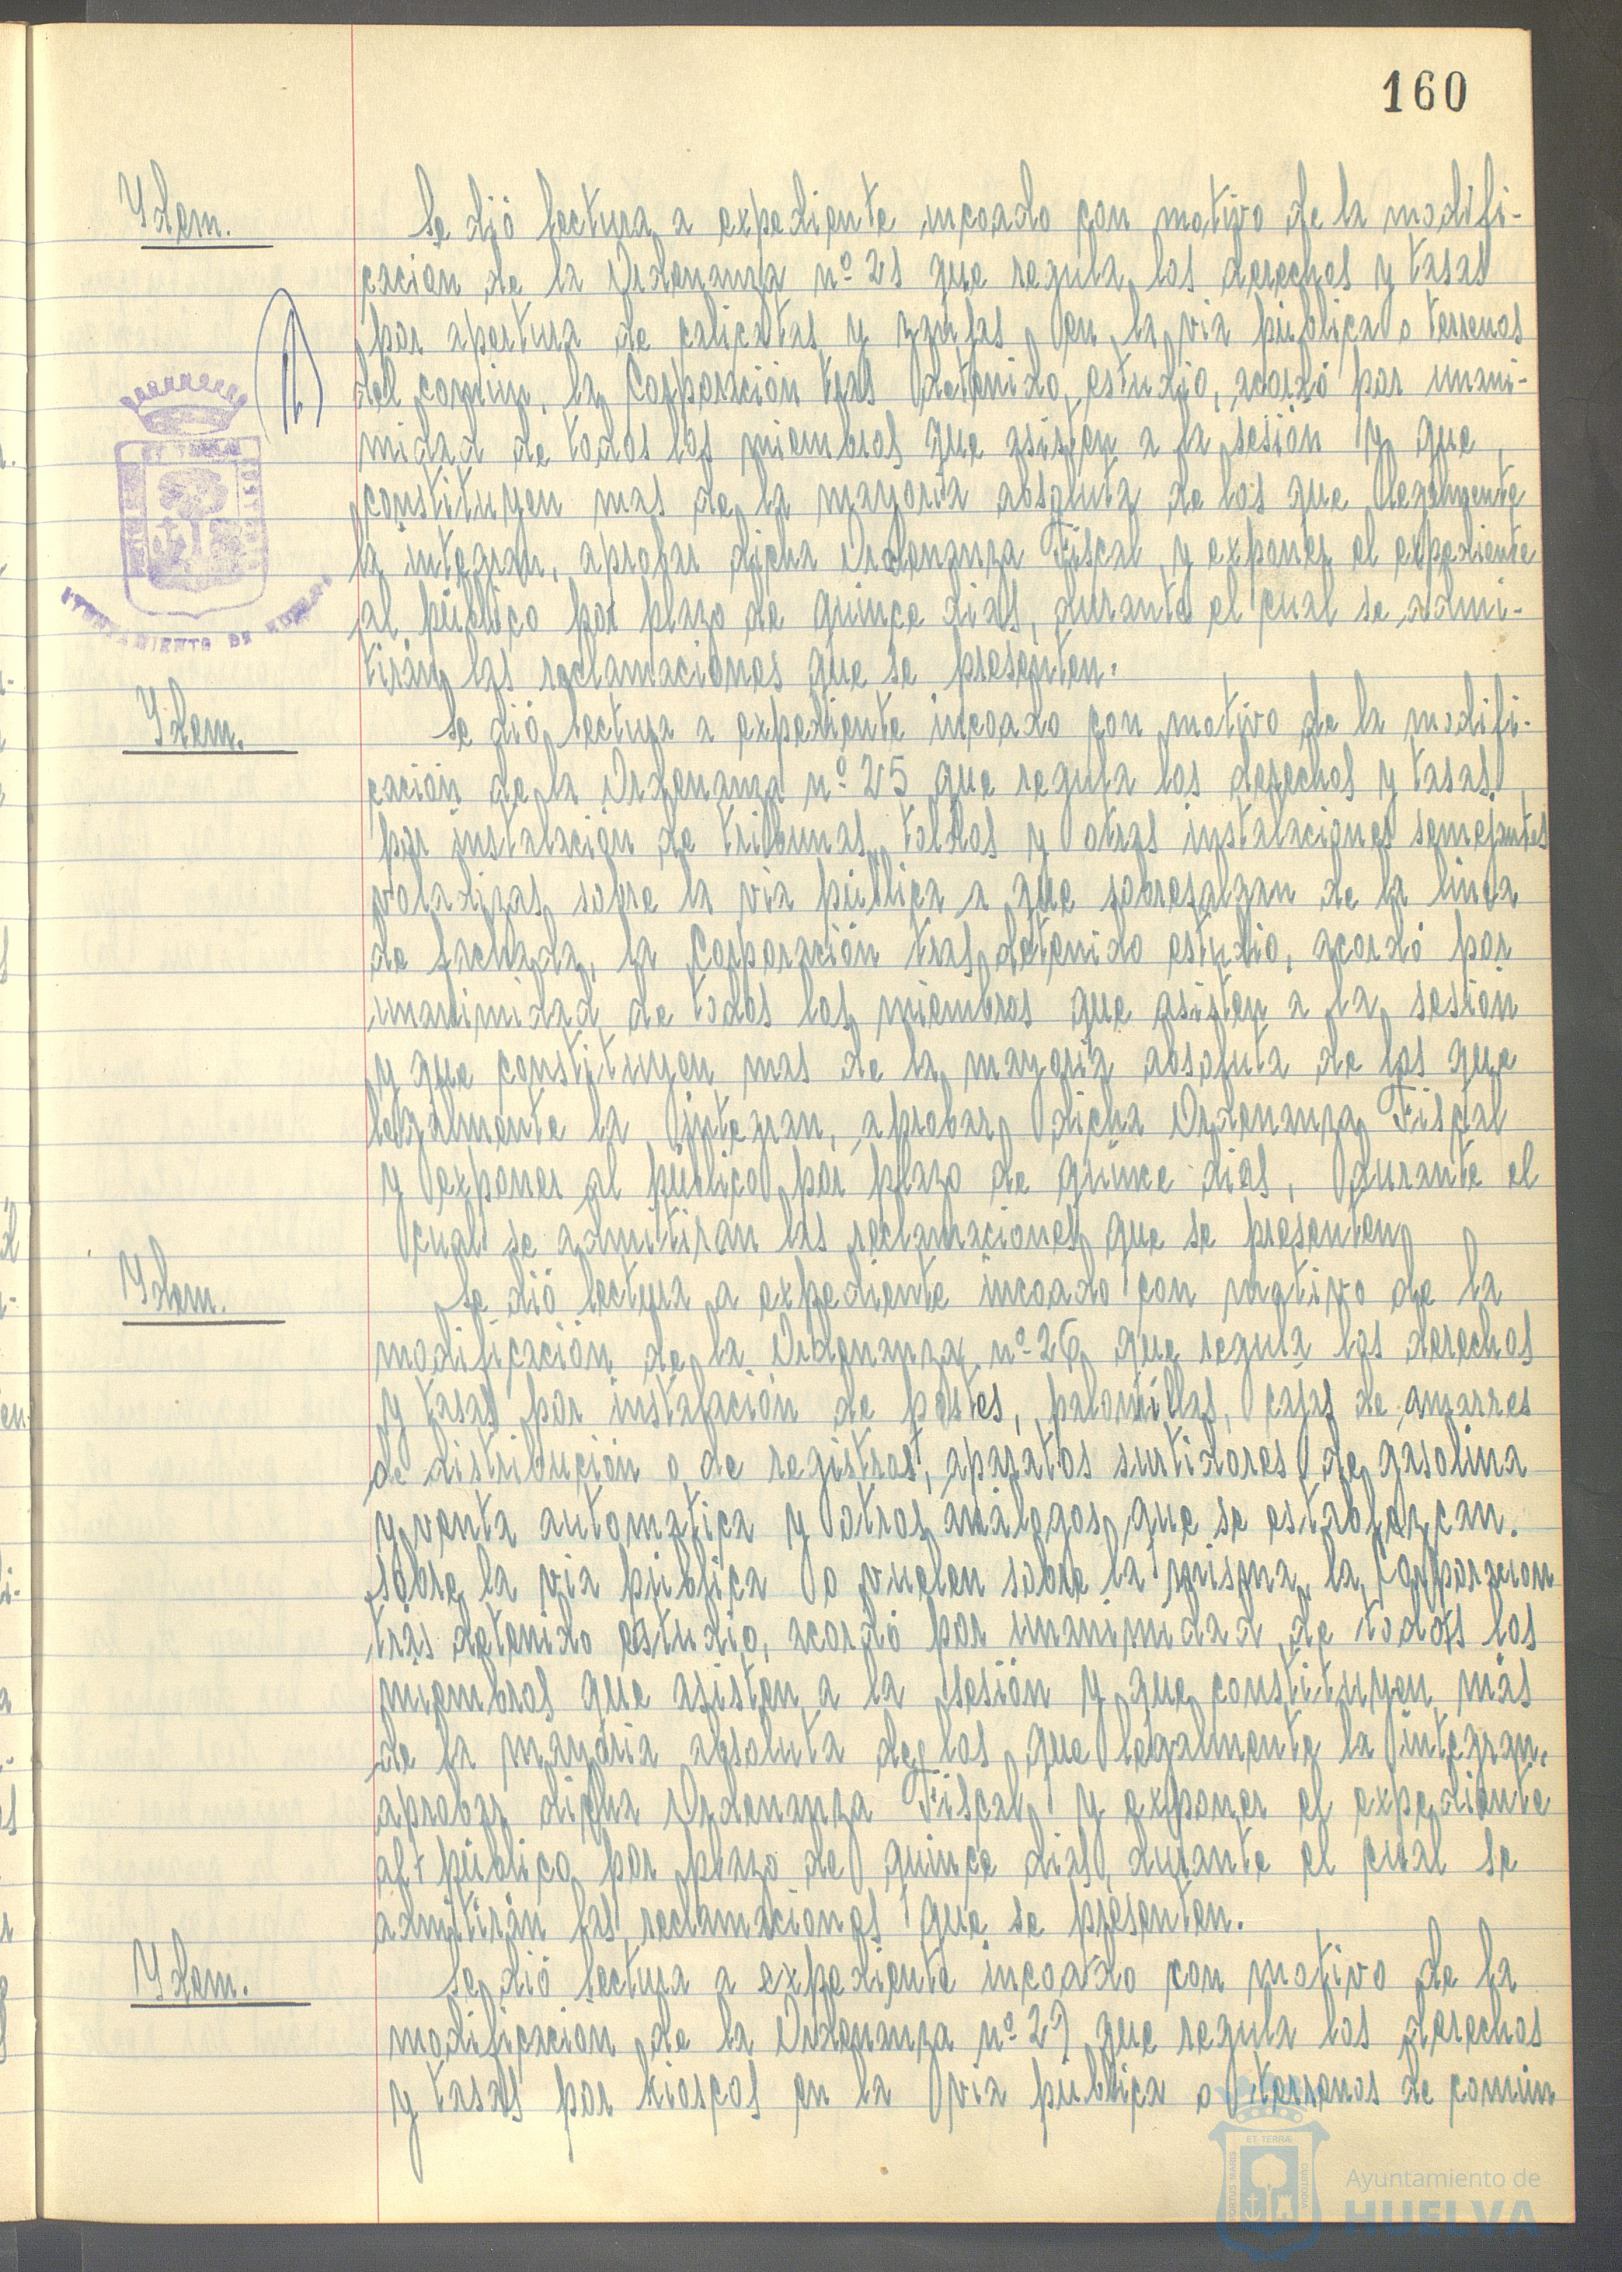 160
Ydem.
Se dió lectura a expediente incoado con motivo de la modifi-
cación de la Ordenanza nº 21 que regula los derechos y tasas
por apertura de calicatas y zanjas en la via pública o terrenos
del común, la Corporación tras detenido estudio, acordó por unani-
midad de todos los miembros que asisten a la sesión y que
constituyen mas de la mayoría absoluta de los que legalmente
la integran, aprobar dicha Ordenanza Fiscal y exponer el expediente
al público por plazo de quince dias, durante el cual se admi-
tirán las reclamaciones que se presenten.
AYUNTAMIENTO DE HUELVA
Ydem.
Se dió lectura a expediente incoado con motivo de la modifi-
cación de la Ordenanza nº 25 que regula los derechos y tasas
por instalación de tribunas, toldos y otras instalaciones semejantes
voladizas sobre la via pública o que sobresalgan de la linea
de fachada, la Corporación tras detenido estudio, acordó por
unanimidad de todos los miembros que asisten a la sesión
y que constituyen mas de la mayoria absoluta de los que
legalmente la integran, aprobar dicha Ordenanza Fiscal
y exponer al público por plazo de quince dias, durante el
cual se admitirán las reclamaciones que se presenten
Ydem.
Se dió lectura a expediente incoado con motivo de la
modificación de la Ordenanza nº 26 que regula los derechos
y tasas por instalación de postes, palomillas, cajas de amarres
de distribución o de registros, aparatos surtidores de gasolina
y venta automatica y otros análogos que se establezcan.
sobre la via pública o vuelen sobre la misma, la Corporacion
trás detenido estudio, acordó por unanimidad de todos los
miembros que asisten a la sesión y que constituyen más
de la mayoria absoluta de los que legalmente la integran,
aprobar dicha Ordenanza Fiscal y exponer el expediente
al público por plazo de quince dias, durante el cual se
admitirán las reclamaciones que se presenten.
Ydem.
Se dió lectura a expediente incoado con motivo de la
modificacion de la Ordenanza nº 29 que regula los derechos
y tasas por kioscos en la via pública o terrenos de común
Ayuntamiento de
HUELVA